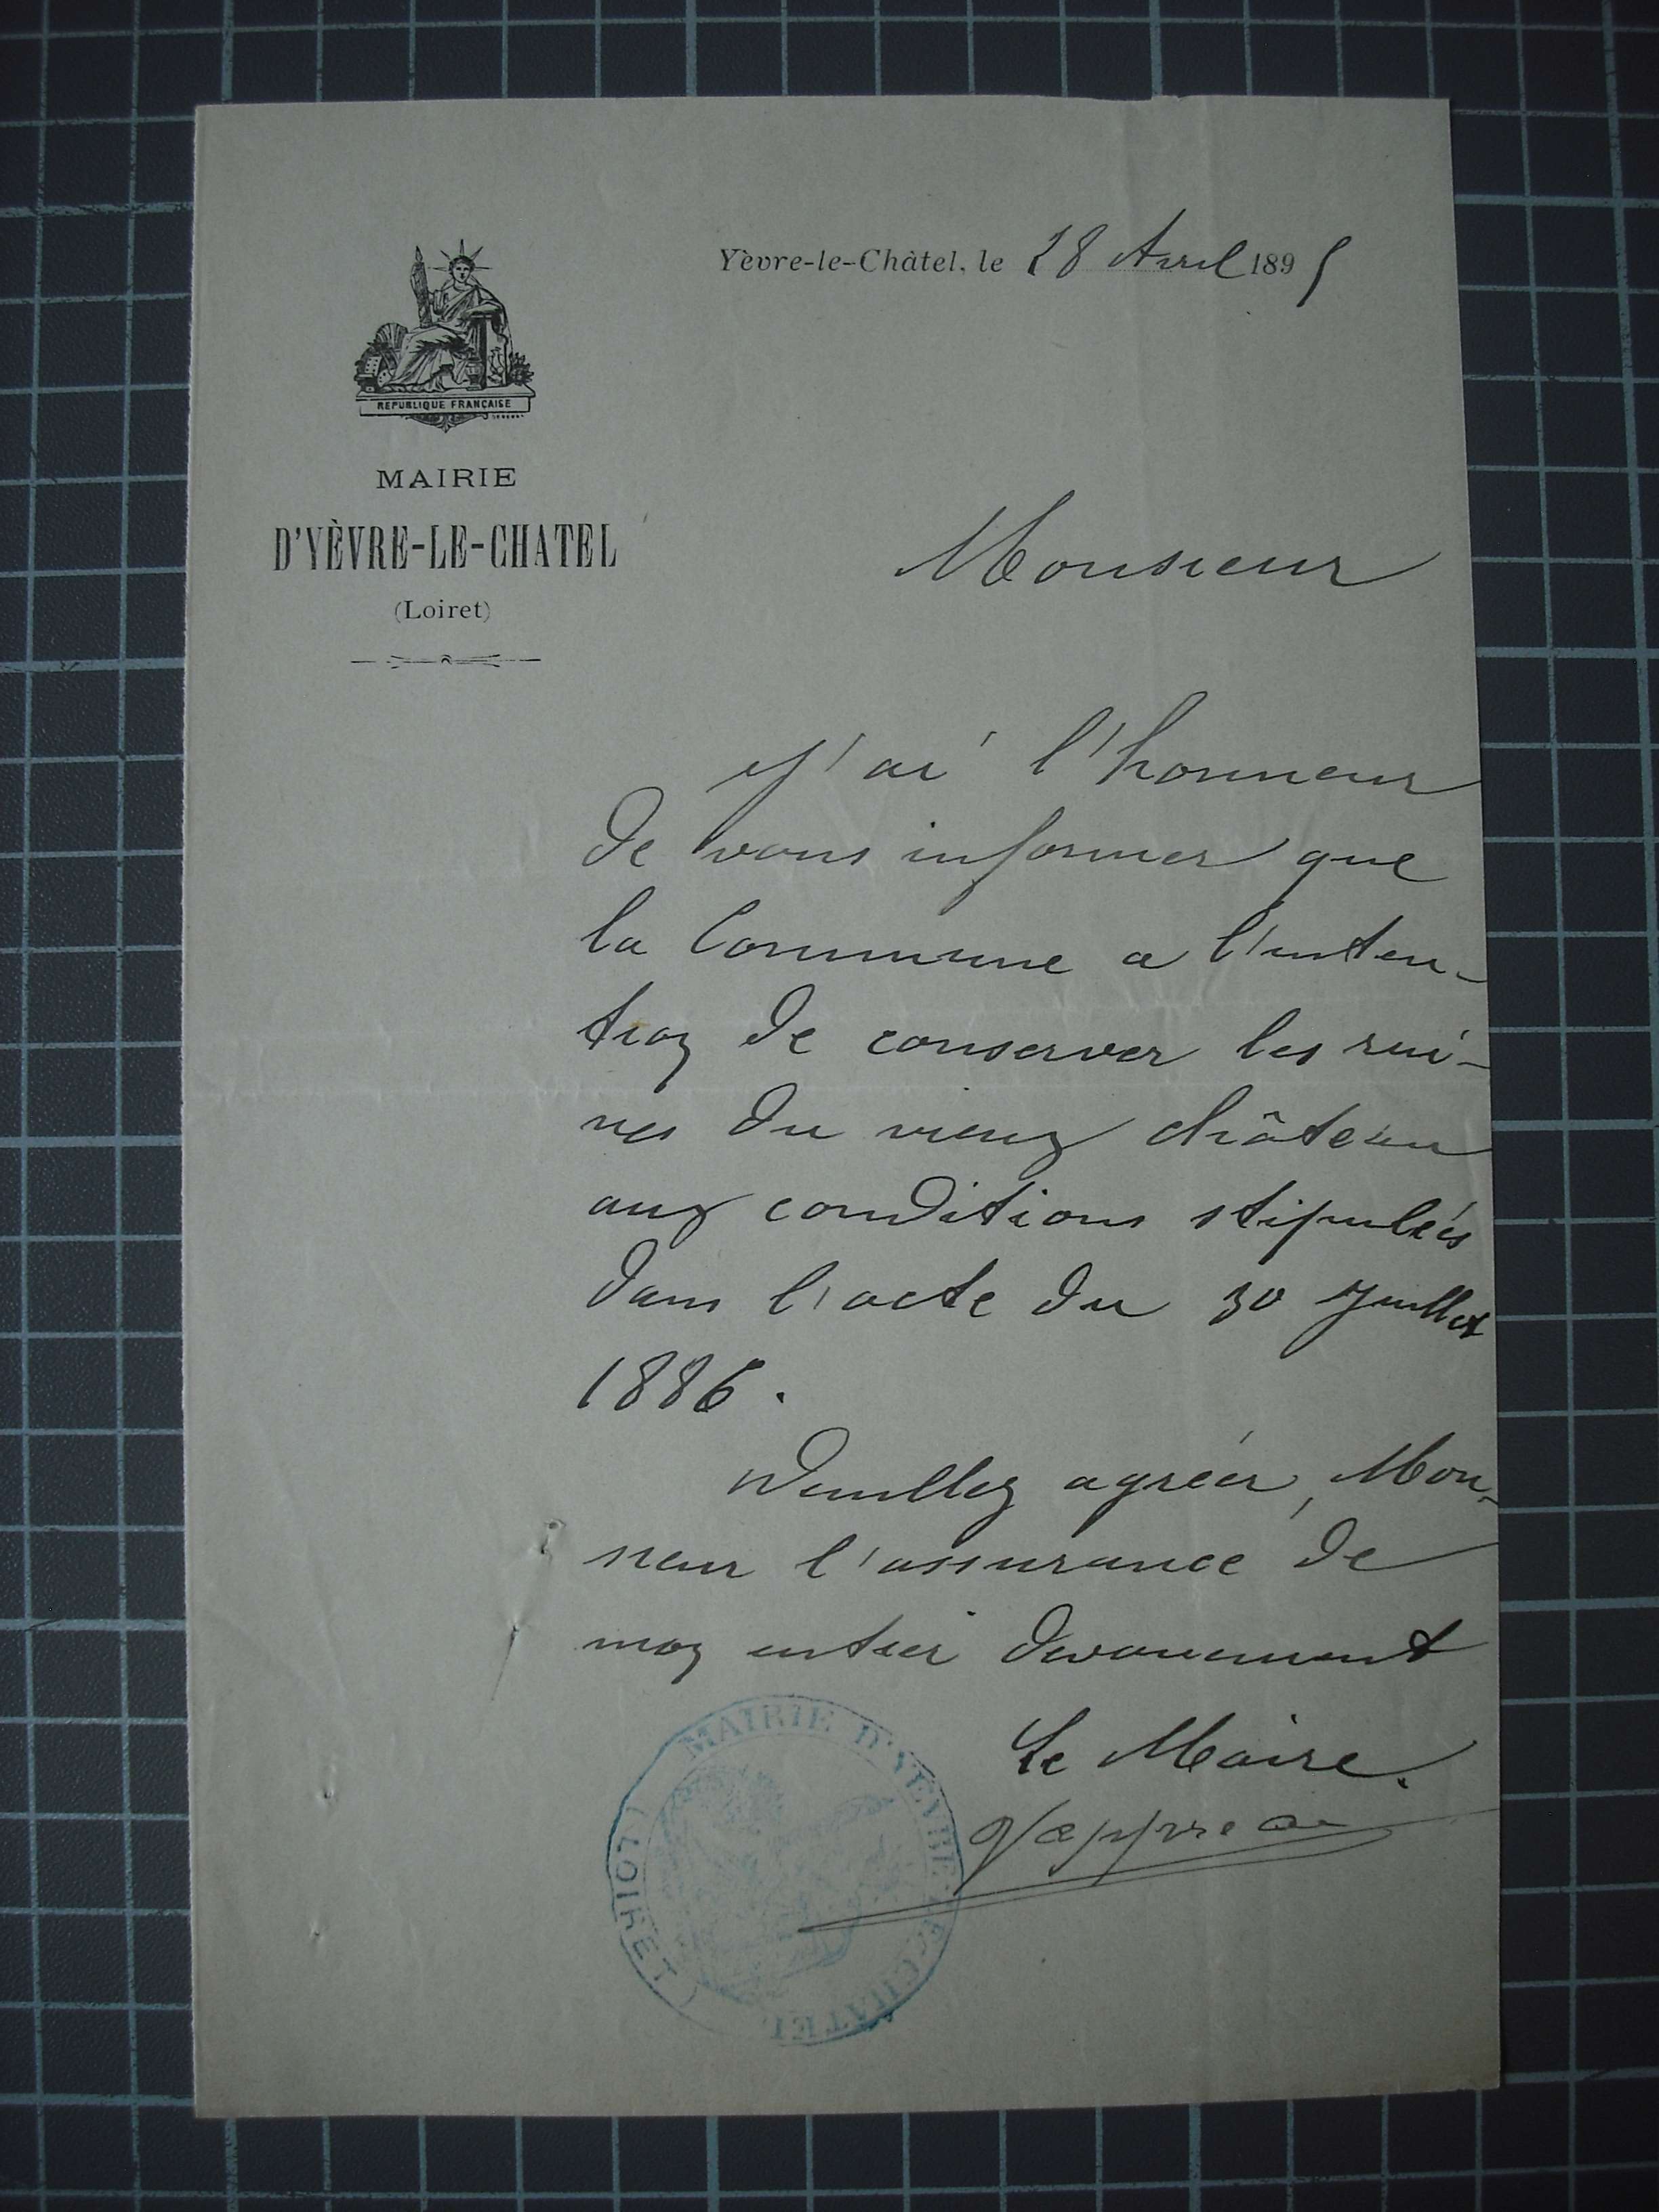 Yèvre-le-Châtel, le 28 Avril 1895
REPUBLIQUE FRANÇAISE
MAIRIE
D'YÈVRE-LE-CHATEL
(Loiret)
Monsieur
J'ai l'honneur
de vous informer que
la Commune a l'inten-
tion de conserver les rui-
nes du vieux château
aux conditions stipulées
dans l'acte du 30 Juillet
1886.
Veuillez agréer, Mon-
sieur l'assurance de
mon entier devouement
Le Maire.
MAIRIE D'YÈVRE-LE-CHATEL
(LOIRET)